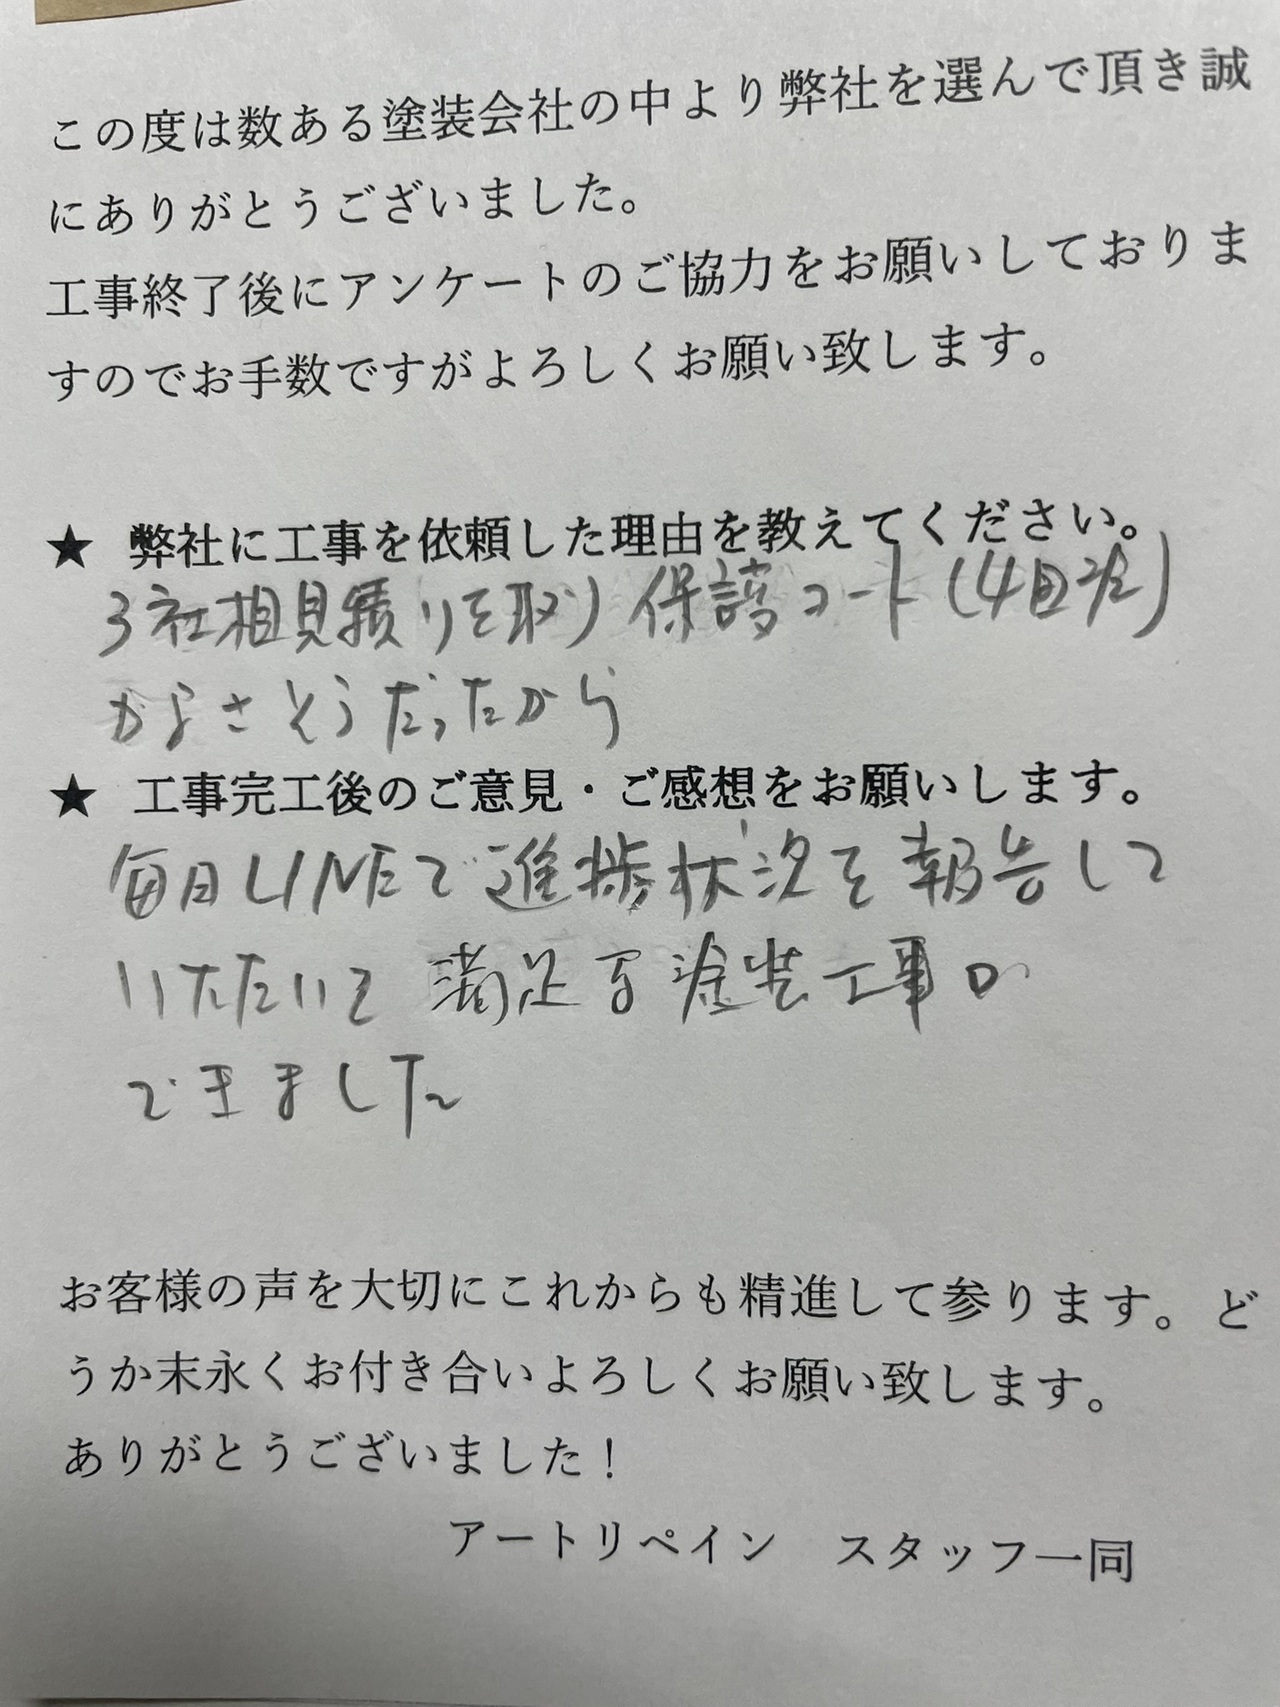 この度は数ある塗装会社の中より弊社を選んで頂き誠
にありがとうございました。
工事終了後にアンケートのご協力をお願いしておりま
すのでお手数ですがよろしくお願い致します。
★ 弊社に工事を依頼した理由を教えてください。
3社相見積りを取り 保護コート(4回塗)
がよさそうだったから
★ 工事完工後のご意見・ご感想をお願いします。
毎日LINEで進捗状況を報告して
いただいて 満足な塗装工事が
できました
お客様の声を大切にこれからも精進して参ります。ど
うか末永くお付き合いよろしくお願い致します。
ありがとうございました！
アートリペイン スタッフ一同